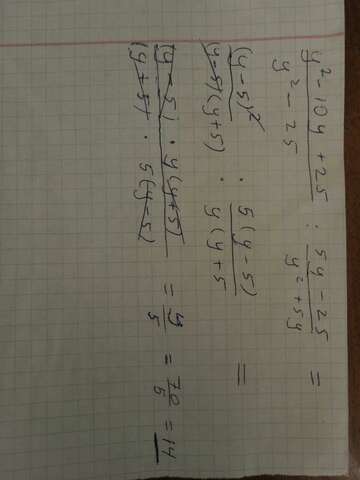 y² - 10y + 25 / y² - 25 : 5y - 25 / y² + 5y =
(y - 5)² / (y - 5)(y + 5) : 5(y - 5) / y(y + 5 =
(y - 5) · y(y + 5) / (y + 5) · 5(y - 5) = y / 5 = 70 / 5 = 14